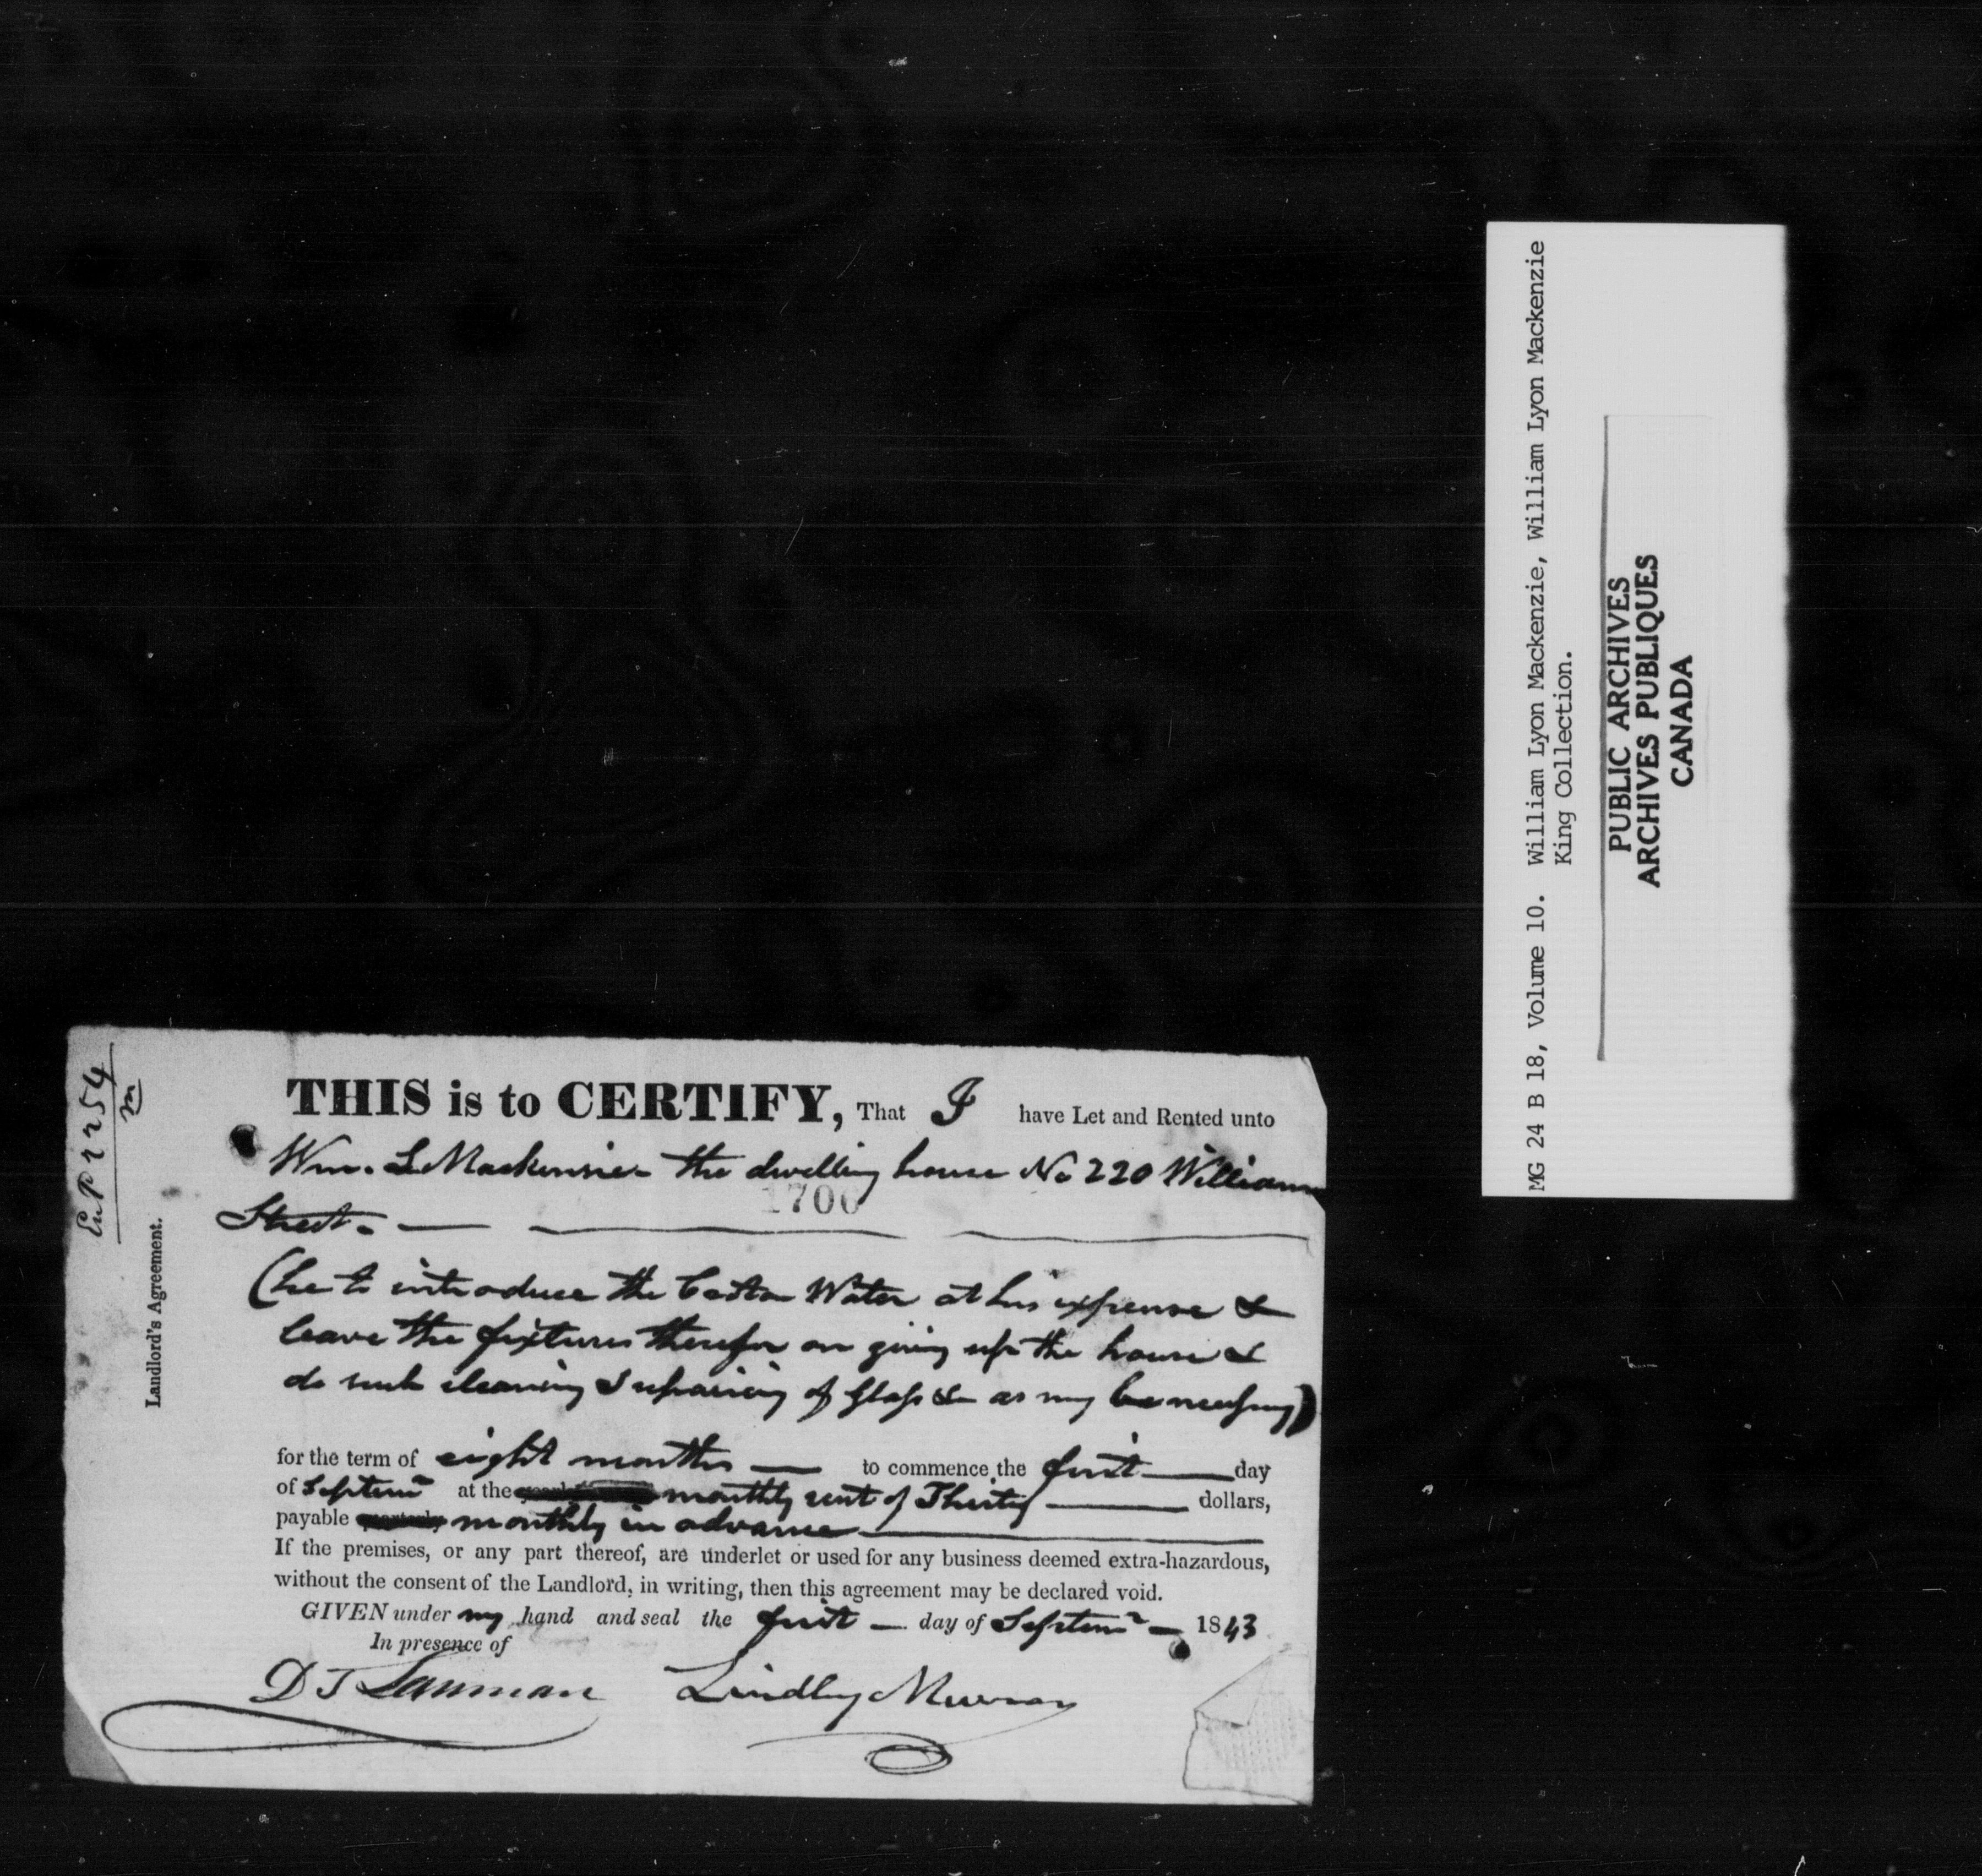 THIS is to CERTIFY, That I have Let and Rented unto
Wm. L Mackenzie - the dwelling house No 220 William
1700
Street. —
(he to introduce the Croton Water at his expense &
leave the fixtures therefor on giving up the house &
do such cleaning & repairing of Glass &c as may be necessary)
for the term of eight months — to commence the first — day
of Septemr at the monthly rent of Thirty — dollars,
payable quarterly monthly in advance —
If the premises, or any part thereof, are underlet or used for any business deemed extra-hazardous,
without the consent of the Landlord, in writing, then this agreement may be declared void.
GIVEN under my hand and seal the first — day of Septemr — 1843
In presence of
D T Lanman Lindley Murray
Landlord's Agreement.
MG 24 B 18, Volume 10. William Lyon Mackenzie, William Lyon Mackenzie
King Collection.
PUBLIC ARCHIVES
ARCHIVES PUBLIQUES
CANADA